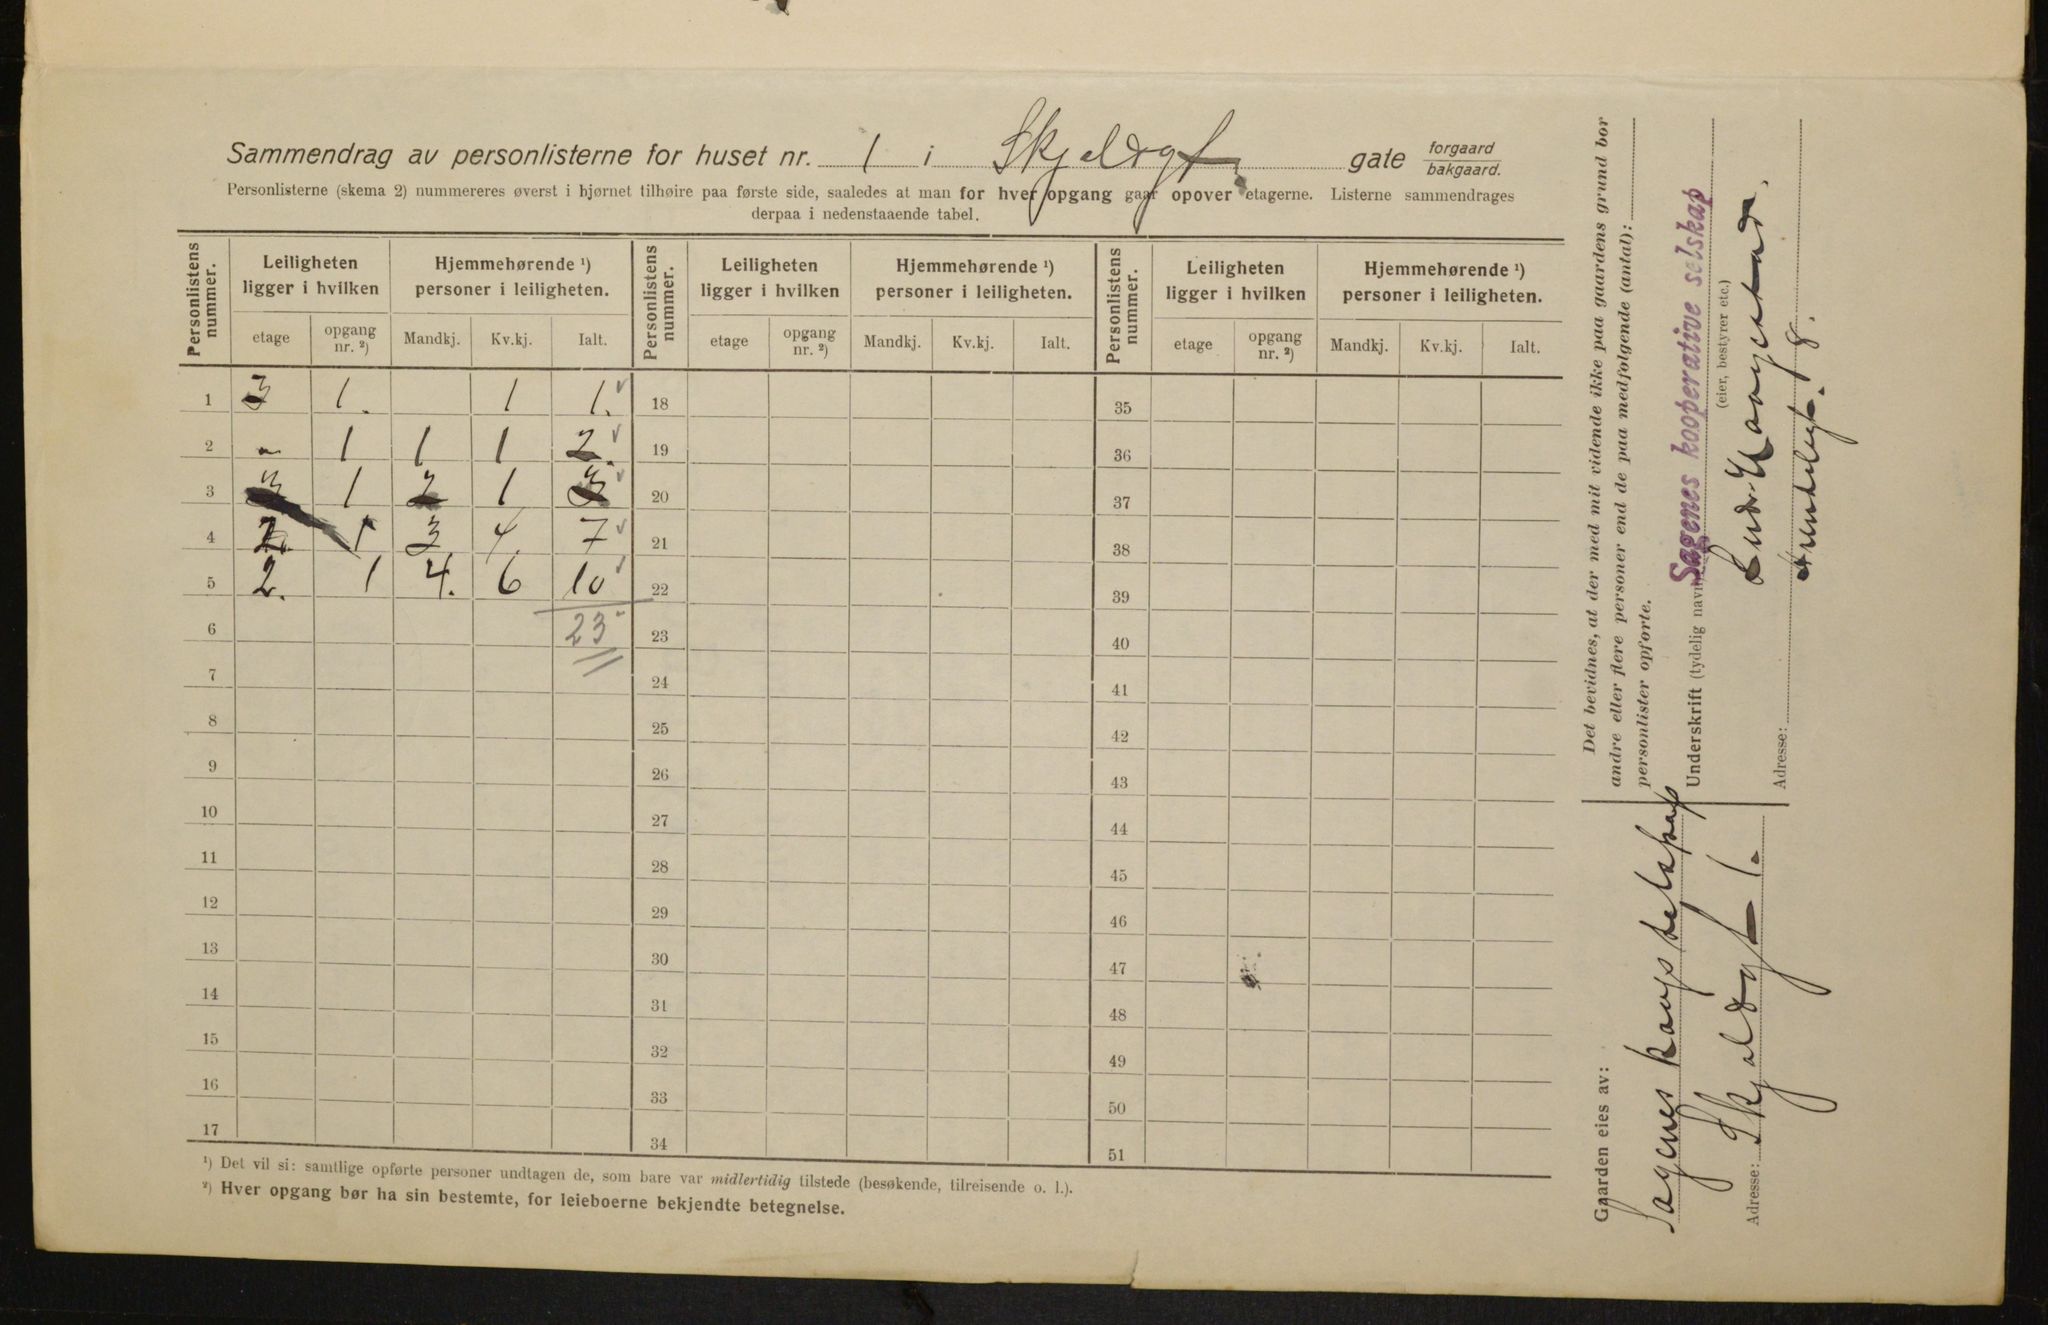 Sammendrag av personlisterne for huset nr. 1 i Skjoldgt gate forgaard bakgaard.
Personlisterne (skema 2) nummereres øverst i hjørnet tilhøire paa første side, saaledes at man for hver opgang gaar opover etagerne. Listerne sammendrages
derpaa i nedenstaaende tabel.
Personlistens nummer. Leiligheten ligger i hvilken Hjemmehørende ¹) personer i leiligheten. Personlistens nummer. Leiligheten ligger i hvilken Hjemmehørende ¹) personer i leiligheten. Personlistens nummer. Leiligheten ligger i hvilken Hjemmehørende ¹) personer i leiligheten.
etage opgang nr. ²) Mandkj. Kv.kj. Ialt. etage opgang nr. ²) Mandkj. Kv.kj. Ialt. etage opgang nr. ²) Mandkj. Kv.kj. Ialt.
1 3 1. 1 1. 18 35
2 - 1 1 1 2. 19 36
3 3 1 2 1 3 20 37
4 2. 1 3 4. 7 21 38
5 2. 1 4. 6 10 22 39
6 23 23 40
7 24 41
8 25 42
9 26 43
10 27 44
11 28 45
12 29 46
13 30 47
14 31 48
15 32 49
16 33 50
17 34 51
¹) Det vil si: samtlige opførte personer undtagen de, som bare var midlertidig tilstede (besøkende, tilreisende o. l.).
²) Hver opgang bør ha sin bestemte, for leieboerne bekjendte betegnelse.
Det bevidnes, at der med mit vidende ikke paa gaardens grund bor
andre eller flere personer end de paa medfølgende (antal):
personlister opførte.
Sagenes kooperative selskap
Underskrift (tydelig navn)
(eier, bestyrer etc.)
Adresse: 8.
Gaarden eies av:
Sagenes koops selskap
Adresse: Skjoldgt 1.